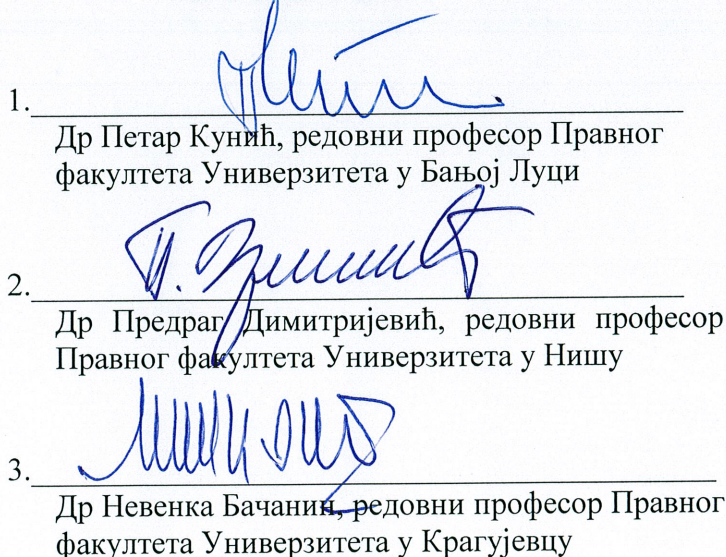 1.
Др Петар Кунић, редовни професор Правног
факултета Универзитета у Бањој Луци
2.
Др Предраг Димитријевић, редовни професор
Правног факултета Универзитета у Нишу
3.
Др Невенка Бачанин, редовни професор Правног
факултета Универзитета у Крагујевцу